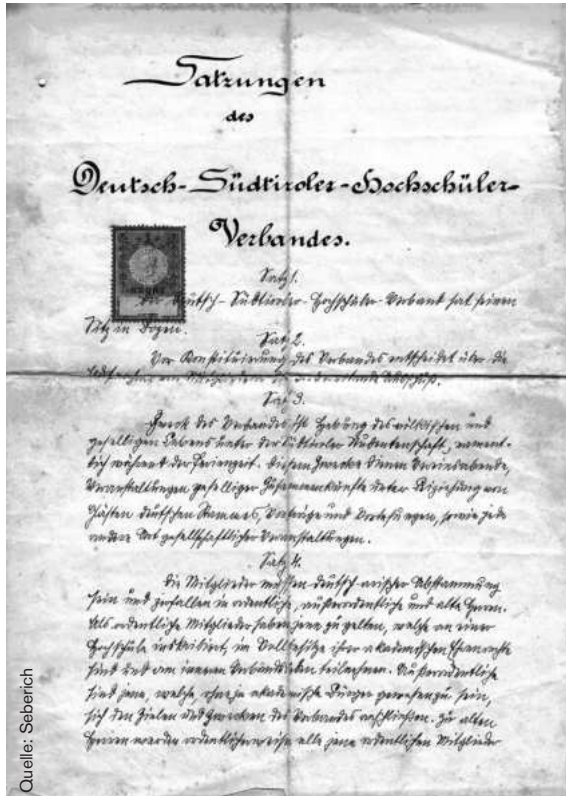 Satzungen
des
Deutsch-Südtiroler-Hochschüler-
Verbandes.
Satz 1.
Der Deutsch-Südtiroler-Hochschüler-Verband hat seinen
Sitz in Bozen.
Satz 2.
Vor Konstituierung des Verbandes entscheidet über die
Aufnahme von Mitgliedern der vorbereitende Ausschuß.
Satz 3.
Zweck des Verbandes ist Hebung des völkischen und
geselligen Lebens unter der Südtiroler Studentenschaft, nament-
lich während der Ferienzeit. Diesem Zwecke dienen Vereinsabende,
Veranstaltungen geselliger Zusammenkünfte unter Beiziehung von
Gästen deutschen Stammes, Vorträge und Vorlesungen, sowie jede
andere Art gesellschaftlicher Veranstaltungen.
Satz 4.
Die Mitglieder müssen deutsch-arischer Abstammung
sein und zerfallen in ordentliche, außerordentliche und alte Herren.
Als ordentliche Mitglieder haben jene zu gelten, welche an einer
Hochschule inskribiert, im Vollbesitze ihrer akademischen Ehrenrechte
sind und am inneren Verbandsleben teilnehmen. Außerordentliche
sind jene, welche, ohne je akademische Bürger gewesen zu sein,
sich den Zielen und Zwecken des Verbandes anschließen. Zu alten
Herren werden ordentlicherweise alle jene ordentlichen Mitglieder
Quelle: Seberich